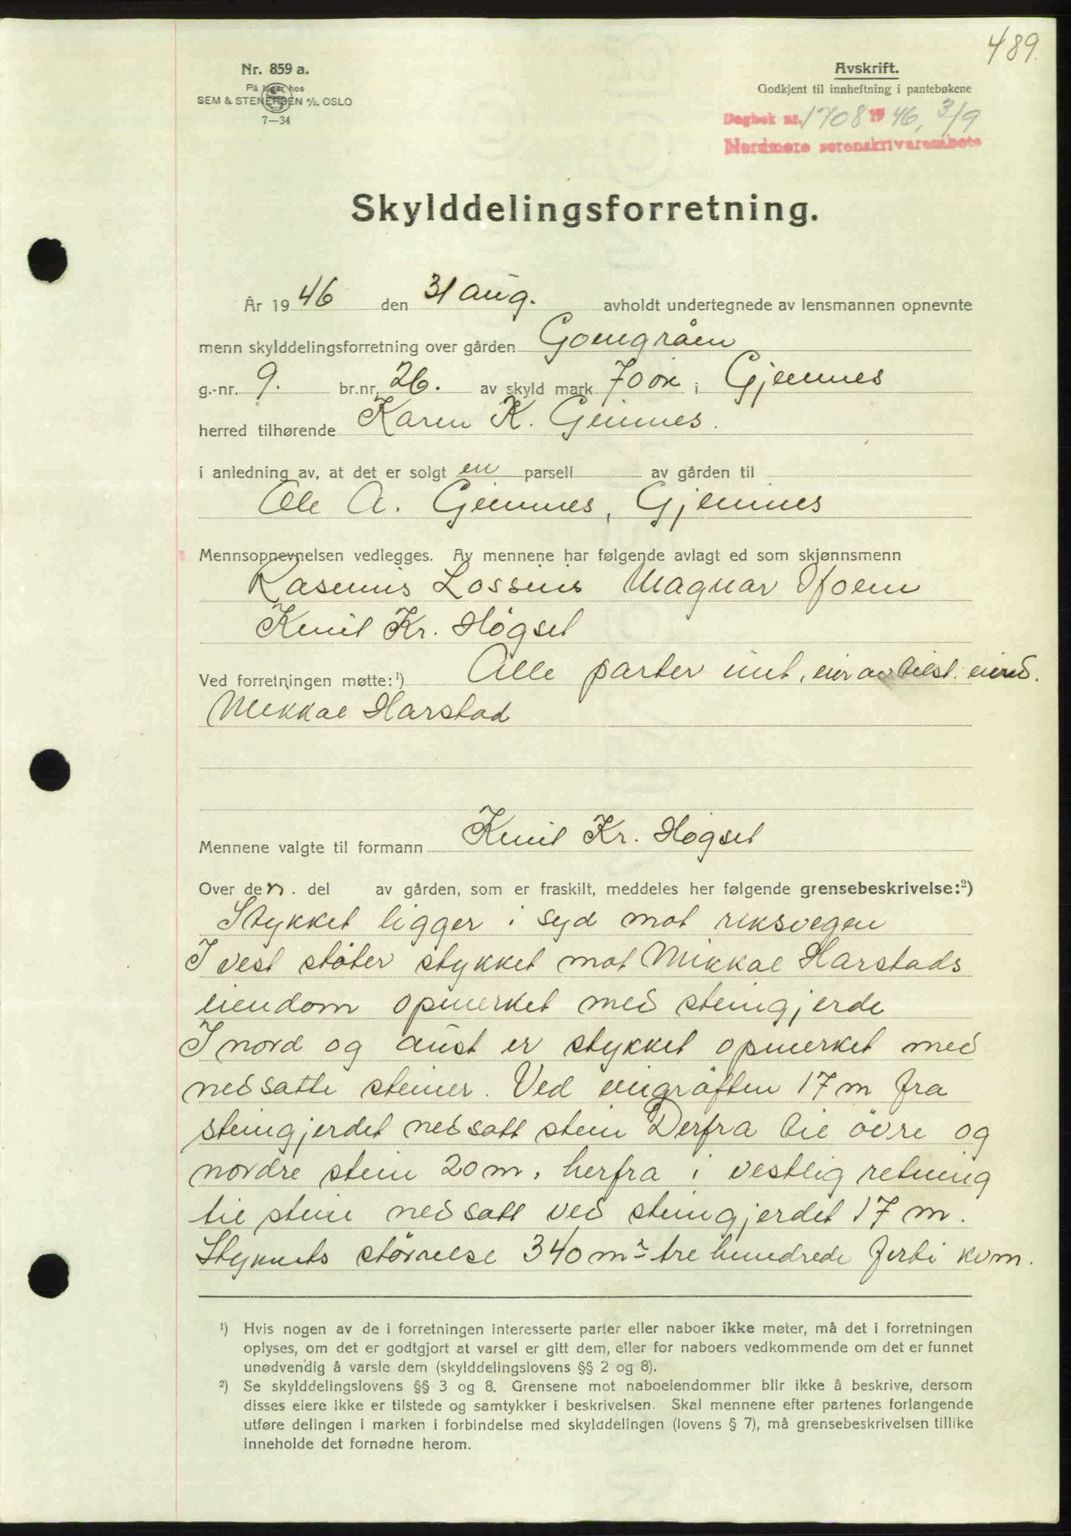 489.
Nr. 859 a.
På lager hos
SEM & STENERSEN A/S, OSLO
7—34
Avskrift.
Godkjent til innheftning i pantebøkene
Dagbok nr. 1708 1946, 3/9
Nordmøre sorenskriverembete
Skylddelingsforretning.
År 1946 den 31 aug. avholdt undertegnede av lensmannen opnevnte
menn skylddelingsforretning over gården
g.-nr. 9. br.nr. 26. av skyld mark 70 øre i Gjemnes
herred tilhørende Karen K. Geimnes.
i anledning av, at det er solgt en parsell av gården til
Ole A. Geimnes, Gjemnes
Mennsopnevnelsen vedlegges. Av mennene har følgende avlagt ed som skjønnsmenn
Rasmus Lossius Magnar
Knut Kr. Høgset
Ved forretningen møtte:¹) Alle parter unt. eier av tilst. eiend.
Mikkal Harstad
Mennene valgte til formann Knut Kr. Høgset
Over den. del av gården, som er fraskilt, meddeles her følgende grensebeskrivelse:²)
Stykket ligger i syd mot riksvegen
I vest støter stykket mot Mikkal Harstads
eiendom opmerket med steingjerde
I nord og aust er stykket opmerket med
nedsatte steiner. Ved veigrøften 17 m fra
steingjerdet nedsatt stein Derfra til øvre og
nordre stein 20 m. herfra i vestlig retning
til stein nedsatt ved steingjerdet 17 m.
Stykkets størrelse 340 m² tre hundrede førti kvm.
¹) Hvis nogen av de i forretningen interesserte parter eller naboer ikke møter, må det i forretningen
oplyses, om det er godtgjort at varsel er gitt dem, eller for naboers vedkommende om det er funnet
unødvendig å varsle dem (skylddelingslovens §§ 2 og 8).
²) Se skylddelingslovens §§ 3 og 8. Grensene mot naboeiendommer blir ikke å beskrive, dersom
disses eiere ikke er tilstede og samtykker i beskrivelsen. Skal mennene efter partenes forlangende
utføre delingen i marken i forbindelse med skylddelingen (lovens § 7), må grensebeskrivelsen tillike
inneholde det fornødne herom.